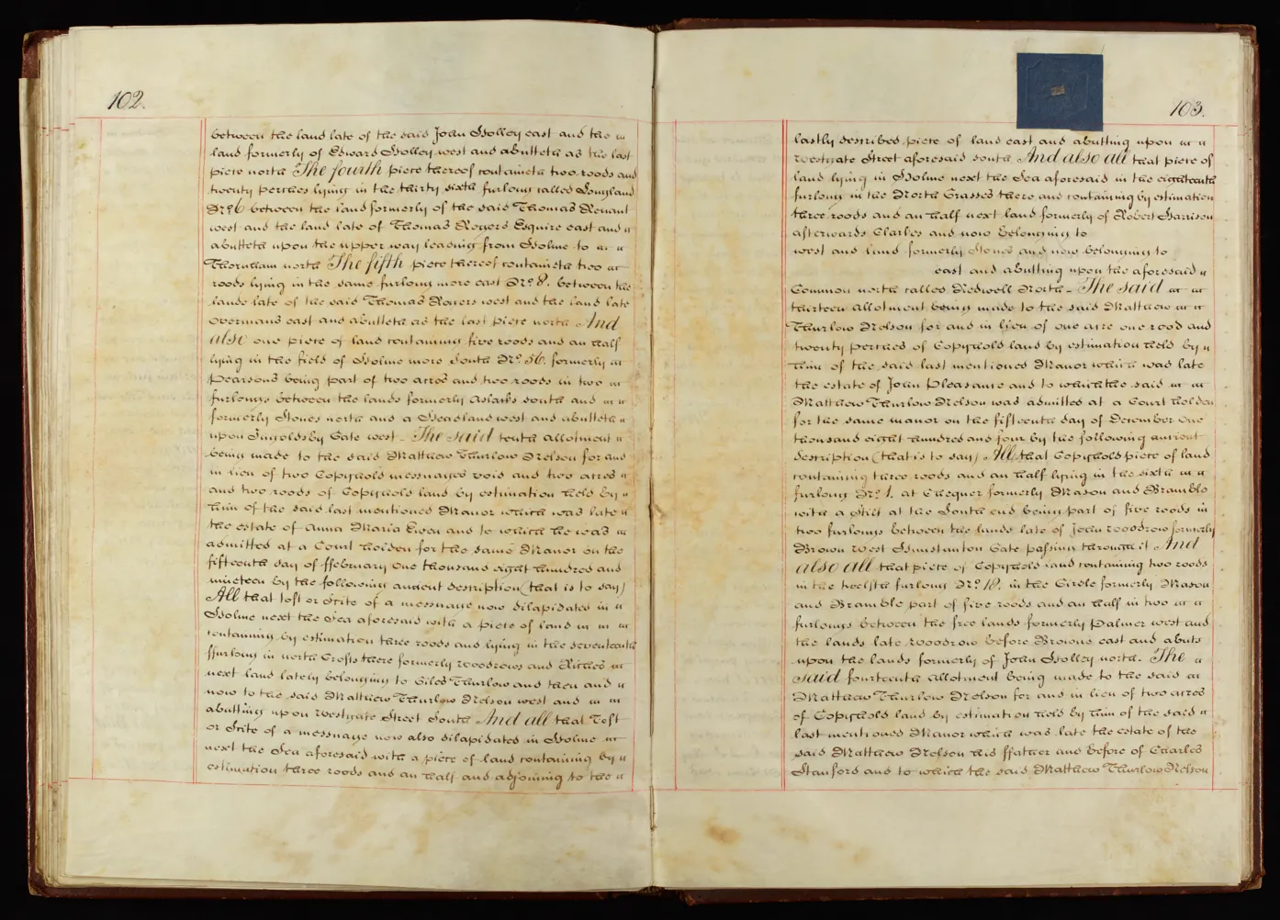 102.
between the land late of the said John Holley east and the
land formerly of Edward Holley west and abutteth as the last
piece north The fourth piece thereof containeth two roods and
twenty perches lying in the thirty sixth furlong called Longland
No. 6 between the land formerly of the said Thomas
west and the land late of Thomas Rogers Esquire east and
abutteth upon the upper way leading from Holme to
Thornham north The fifth piece thereof containeth two
roods lying in the same furlong more east No. 8. between the
lands late of the said Thomas Rogers west and the land late
Overmans east and abutteth as the last piece north And
also one piece of land containing five roods and an half
lying in the field of Holme more South No. 56. formerly
Pearsons being part of two acres and two roods in two
furlongs between the lands formerly Aslacks south and
formerly Stones north and a Headland west and abutteth
upon Ingoldsby Gate west. The said tenth allotment
being made to the said Matthew Thurlow Nelson for and
in lieu of two Copyhold messuages void and two acres
and two roods of Copyhold land by estimation held by
him of the said last mentioned Manor which was late
the estate of Anna Maria Ewen and to which he was
admitted at a Court holden for the same Manor on the
fifteenth day of ffebruary One thousand eight hundred and
nineteen by the following ancient description (that is to say)
All that toft or Scite of a messuage now dilapidated in
Holme next the Sea aforesaid with a piece of land
containing by estimation three roods and lying in the seventeenth
ffurlong in north Crofts there formerly Woodrows and Riches
next land lately belonging to Giles Thurlow and then and
now to the said Matthew Thurlow Nelson west and
abutting upon Westgate Street South And all that Toft
or Scite of a messuage now also dilapidated in Holme
next the Sea aforesaid with a piece of land containing by
estimation three roods and an half and adjoining to the
103.
lastly described piece of land east and abutting upon
Westgate Street aforesaid south And also all that piece of
land lying in Holme next the Sea aforesaid in the eighteenth
furlong in the North Grasses there and containing by estimation
three roods and an half next land formerly of Robert Harrison
afterwards Clarkes and now belonging to
west and land formerly Stones and now belonging to
east and abutting upon the aforesaid
Common north called Redwell North. The said
thirteen allotment being made to the said Matthew
Thurlow Nelson for and in lieu of one acre one rood and
twenty perches of Copyhold land by estimation held by
him of the said last mentioned Manor which was late
the estate of John Pleasance and to which the said
Matthew Thurlow Nelson was admitted at a Court holden
for the same manor on the fifteenth day of December One
thousand eight hundred and four by the following ancient
description (that is to say) All that Copyhold piece of land
containing three roods and an half lying in the sixth
furlong No. 1. at Chequer formerly Mason and Bramble
with a Stilt at the South end being part of five roods in
two furlongs between the lands late of John Woodrow formerly
Brown West Hunstanton Gate passing through it And
also all that piece of Copyhold land containing two roods
in the twelfth furlong No. 18. in the Circle formerly Mason
and Bramble part of five roods and an half in two
furlongs between the free lands formerly Palmer west and
the lands late Woodrow before Browne east and abuts
upon the lands formerly of John Holley north. The
said fourteenth allotment being made to the said
Matthew Thurlow Nelson for and in lieu of two acres
of Copyhold land by estimation held by him of the said
last mentioned Manor which was late the estate of the
said Matthew Nelson his ffather and before of Charles
Stanford and to which the said Matthew Thurlow Nelson